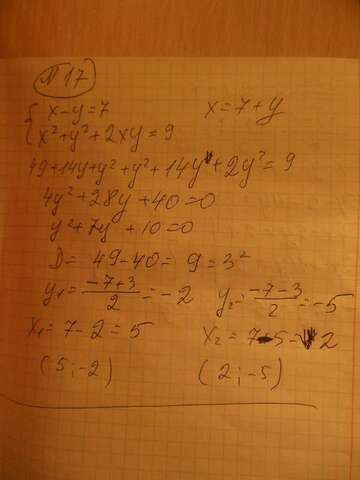 №17
{ x-y=7 x=7+y
x²+y²+2xy=9
49+14y+y²+y²+14y+2y²=9
4y²+28y+40=0
y²+7y+10=0
D= 49-40= 9=3²
y₁= (-7+3)/2 = -2 y₂= (-7-3)/2 = -5
x₁=7-2=5 x₂=7-5=2
(5;-2) (2;-5)